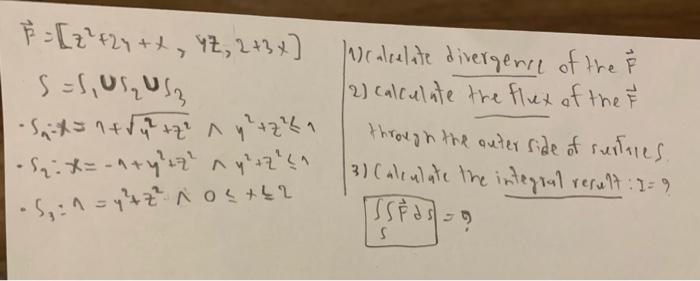 F⃗ = [z²+2y+x, yz, 2+3x]
S = S₁ ∪ S₂ ∪ S₃
• S₁: x = 1+√(y²+z²) ∧ y²+z² ≤ 1
• S₂: x = -1+y²+z² ∧ y²+z² ≤ 1
• S₃: 1 = y²+z² ∧ 0 ≤ x ≤ 2
1) calculate divergence of the F⃗
2) calculate the flux of the F⃗
through the outer side of surfaces.
3) Calculate the integral result: I = ?
∫∫ F⃗ ds = ?
S